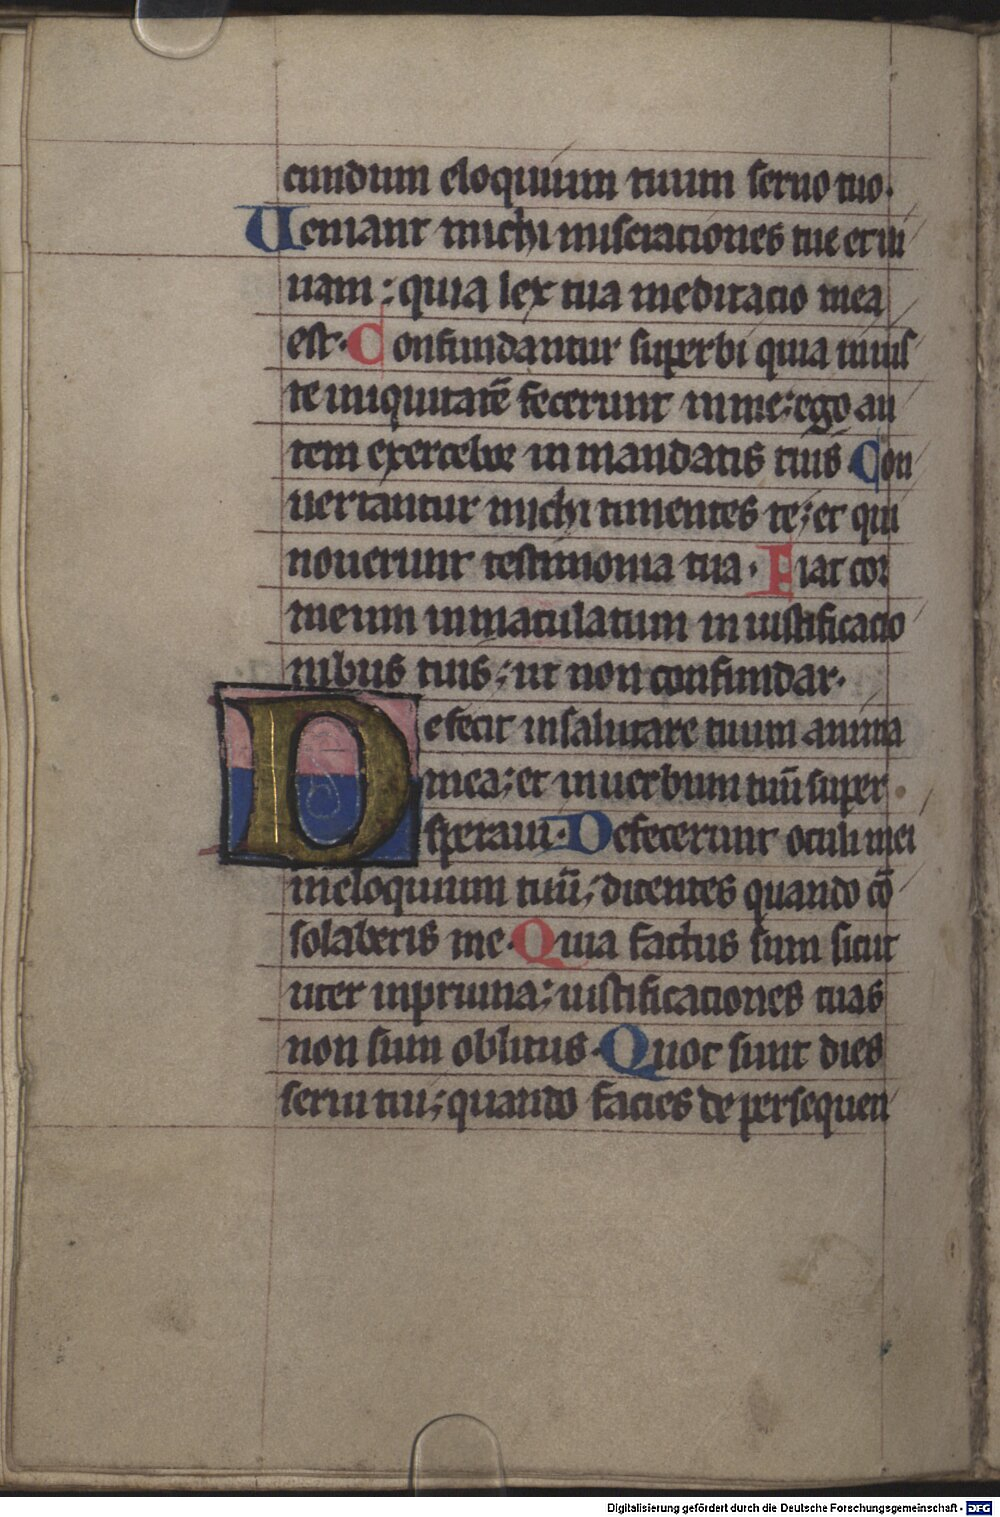 cundum eloquium tuum seruo tuo.
Ueniant michi miseraciones tue et ui
uam : quia lex tua meditacio mea
est. Confundantur superbi quia iniuś
te iniquitatē fecerunt in me : ego au
tem exercebor in mandatis tuis Con
uertantur michi timentes te : et qui
nouerunt testimonia tua . Fiat cor
meum inmaculatum in iustificacio
nibus tuis : ut non confundar .
Defecit in salutare tuum anima
mea : et in uerbum tuū super
speraui . Defecerunt oculi mei
in eloquium tuū : dicentes quando cō
solaberis me . Quia factus sum sicut
uter in pruina : iustificationes tuas
non sum oblitus . Quot sunt dies
serui tui : quando facies de persequen
Digitalisierung gefördert durch die Deutsche Forschungsgemeinschaft - DFG